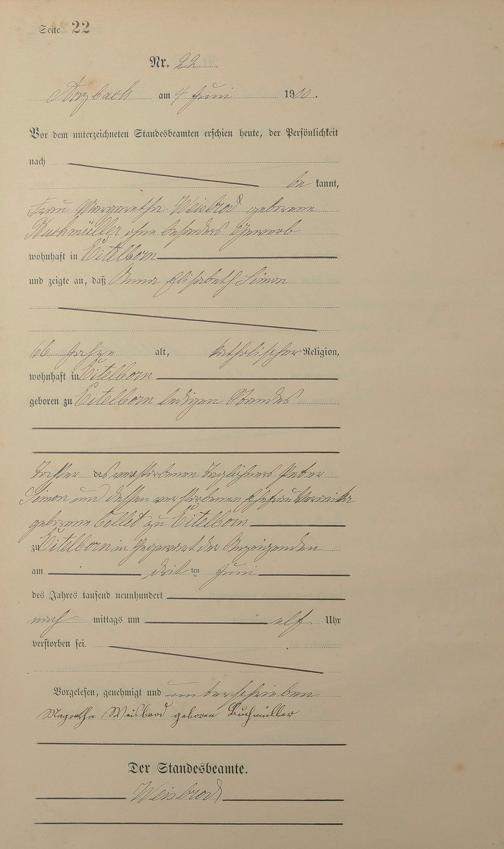 Seite 22
Nr. 22
Arzbach am 4 Juni 1900.
Vor dem unterzeichneten Standesbeamten erschien heute, der Persönlichkeit
nach
be kannt,
Frau Margaretha Weisbrod geborene
Buchmüller ohne besonders Gewerb
wohnhaft in Eitelborn
und zeigte an, daß Anna Elisabeth Simon
66 Jahre alt, katholischer Religion,
wohnhaft in Eitelborn
geboren zu Eitelborn ledigen Standes
Tochter des verstorbenen Taglöhners Peter
Simon und dessen verstorbenen Ehefrau Veronika
geborene Collet zu Eitelborn
zu Eitelborn in Gegenwart der Anzeigenden
am drit ten Juni
des Jahres tausend neunhundert
nach mittags um elf Uhr
verstorben sei.
Vorgelesen, genehmigt und unterschrieben
Weisbrod geboren Buchmüller
Der Standesbeamte.
Weisbrod